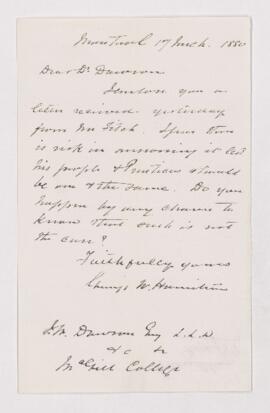 Montreal 17 March. 1880
Dear Dr Dawson
I enclose you a
letter received yesterday
from Mr Fitch.
is risk in answering it lest
his people &
be one & the same. Do you
happen by any chance to
know that such is not
the case?
Faithfully yours
W. Hamilton
Dawson Esq L.L.D
&c &c
McGill College